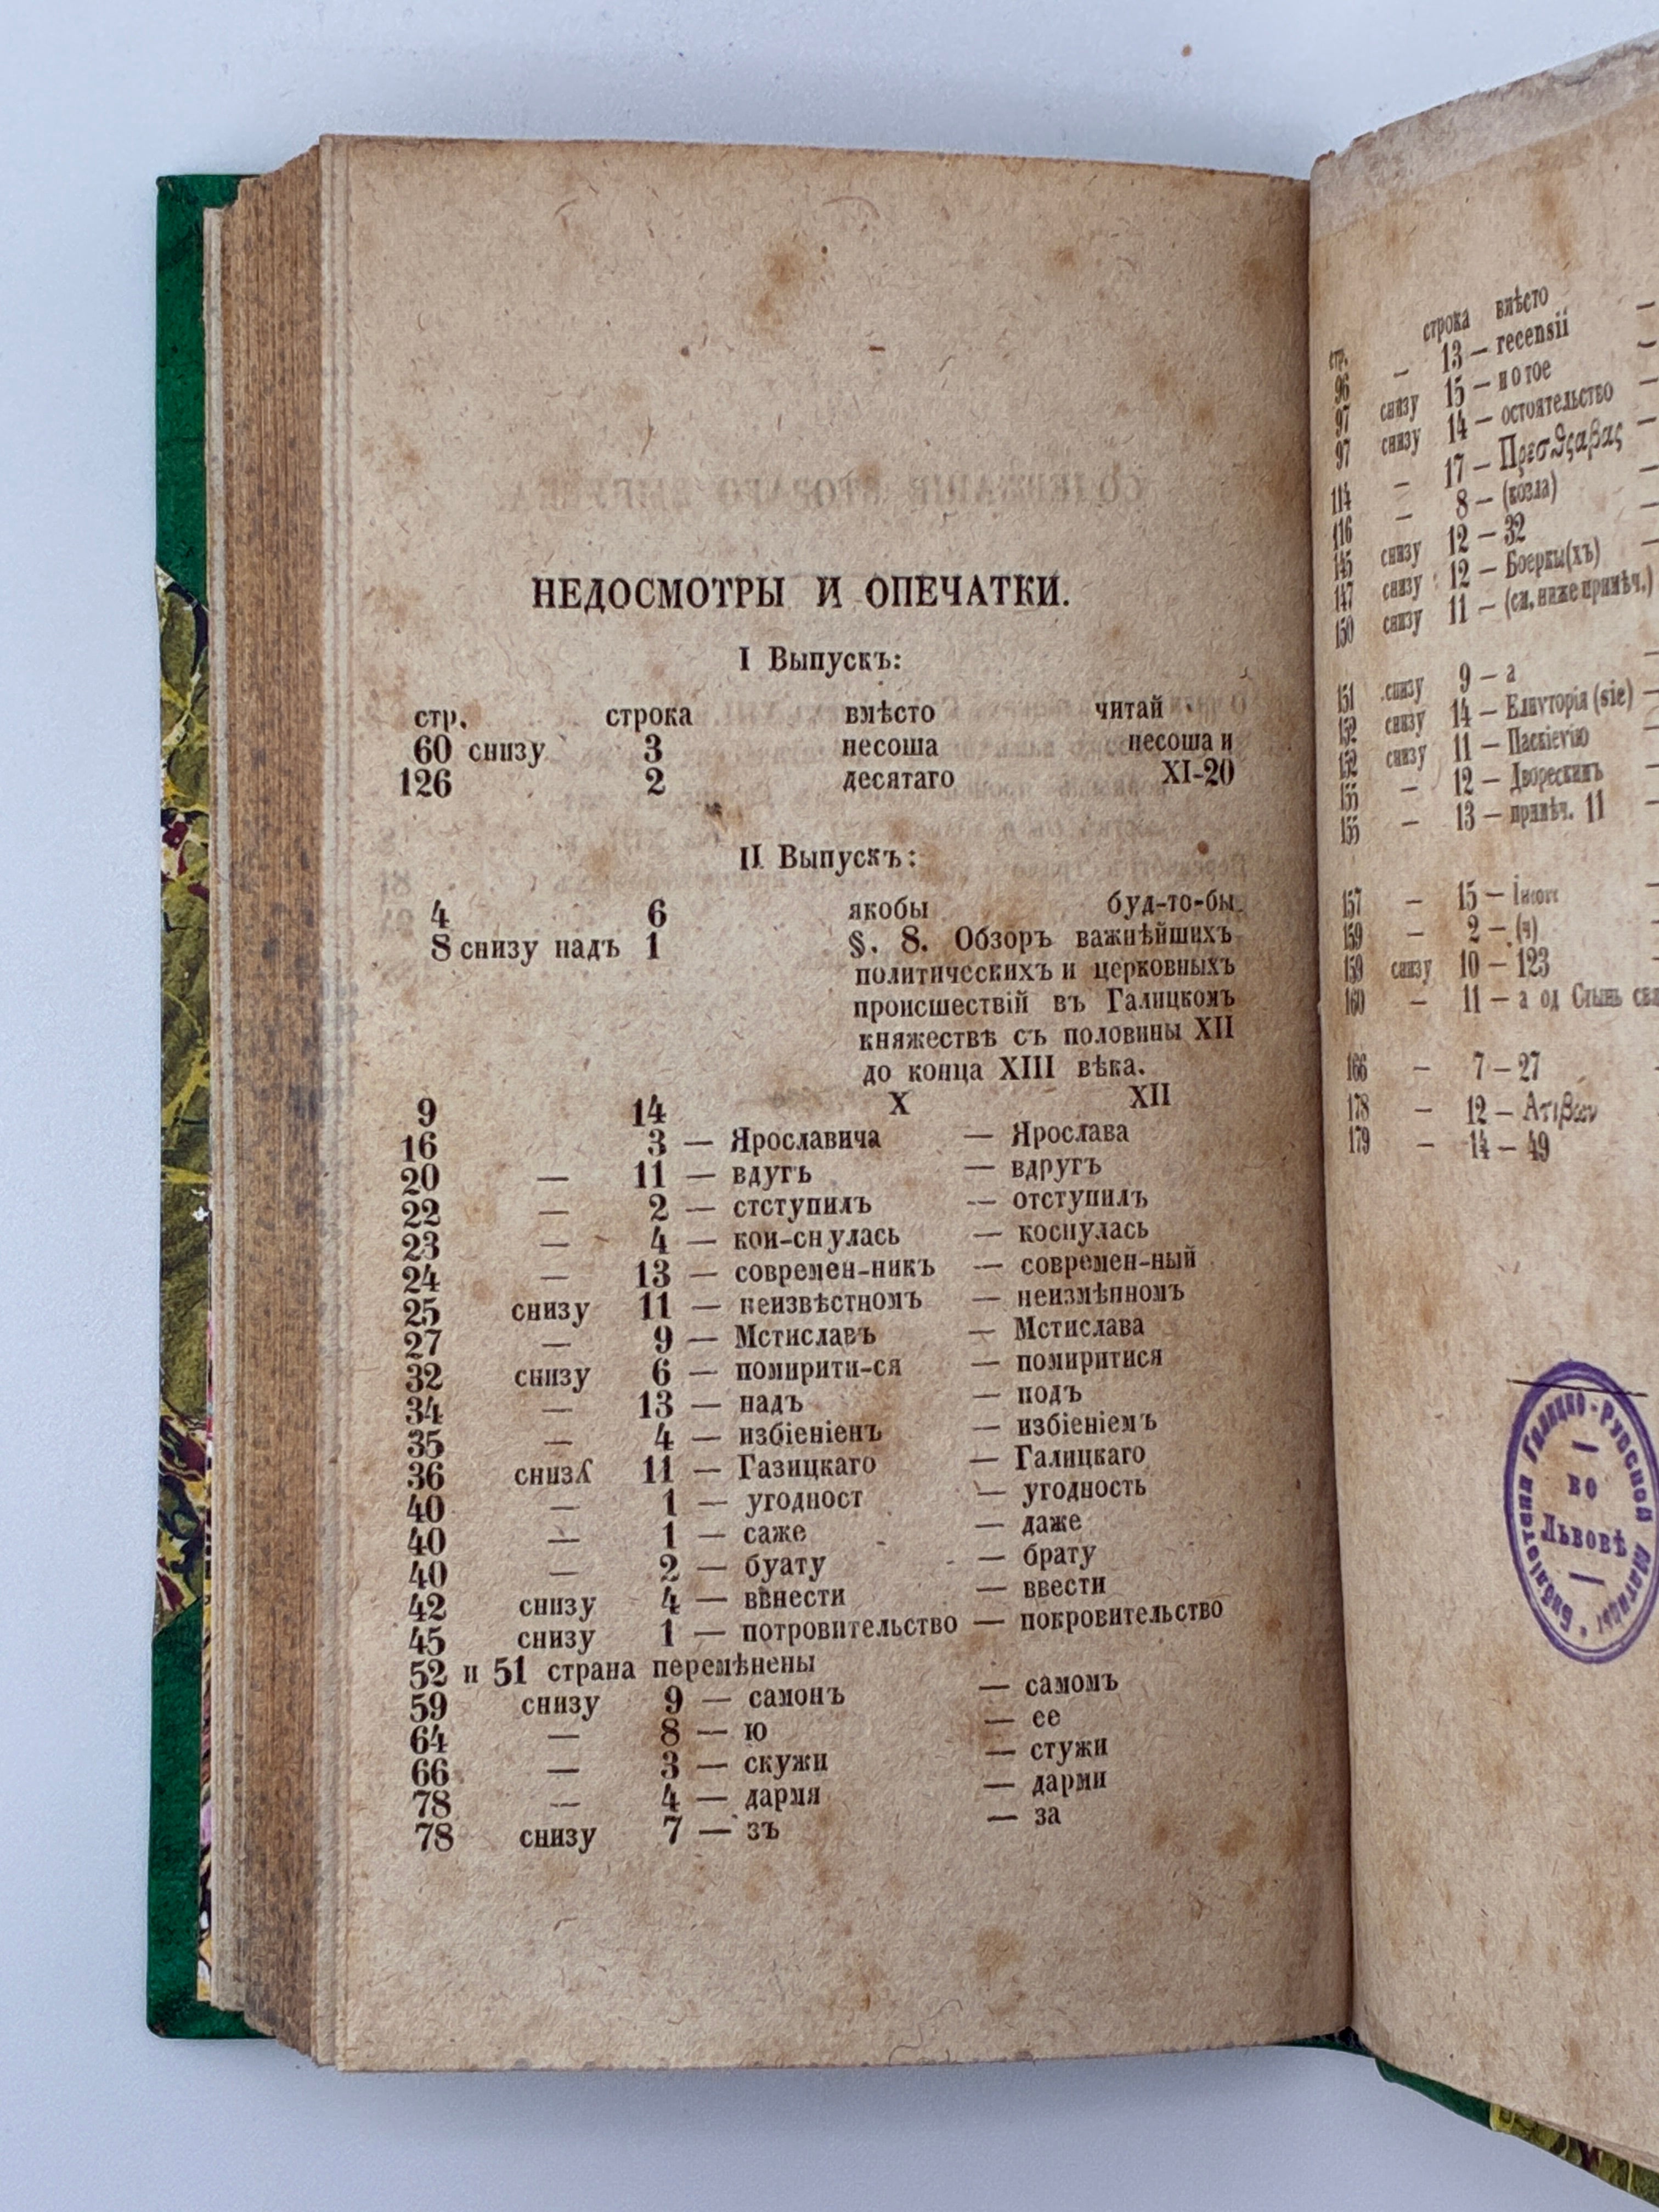 НЕДОСМОТРЫ И ОПЕЧАТКИ.
I Выпускъ:
стр. строка вмѣсто читай
60 снизу 3 несоша несоша и
126 2 десятаго XI-20
II Выпускъ:
4 6 якобы буд-то-бы
8 снизу надъ 1 §. 8. Обзоръ важнѣйшихъ
политическихъ и церковныхъ
происшествій въ Галицкомъ
княжествѣ съ половины XII
до конца XIII вѣка.
9 14 X XII
16 3 — Ярославича — Ярослава
20 — 11 — вдугъ — вдругъ
22 — 2 — стступилъ — отступилъ
23 — 4 — кои-снулась — коснулась
24 — 13 — современ-никъ — современ-ный
25 снизу 11 — неизвѣстномъ — неизмѣнномъ
27 — 9 — Мстиславъ — Мстислава
32 снизу 6 — помирити-ся — помиритися
34 — 13 — надъ — подъ
35 — 4 — избіеніенъ — избіеніемъ
36 снизу 11 — Газицкаго — Галицкаго
40 — 1 — угодност — угодность
40 — 1 — саже — даже
40 — 2 — буату — брату
42 снизу 4 — внести — ввести
45 снизу 1 — потровительство — покровительство
52 и 51 страна перемѣнены
59 снизу 9 — самонъ — самомъ
64 — 8 — ю — ее
66 — 3 — скужи — стужи
78 — 4 — дармя — дарми
78 снизу 7 — зъ — за
стр. строка вмѣсто
96 — 13 — recensii —
97 снизу 15 — потое —
97 снизу 14 — остоятельство —
114 — 17 — —
116 — 8 — (козла) —
145 снизу 12 — 32 —
147 снизу 12 — Боеркы(хъ) —
150 снизу 11 — (см. ниже примѣч.)
151 снизу 9 — а —
152 снизу 14 — Елвуторія (sie) —
152 снизу 11 — Паскіевію —
155 — 12 — Дворескимъ —
155 — 13 — примѣч. 11 —
157 — 15 — —
159 — 2 — (ч) —
159 снизу 10 — 123
160 — 11 — а од Стынь
166 — 7 — 27
178 — 12 —
179 — 14 — 49
Библіотеки Галицко-Русской Матицы
во
Львовѣ